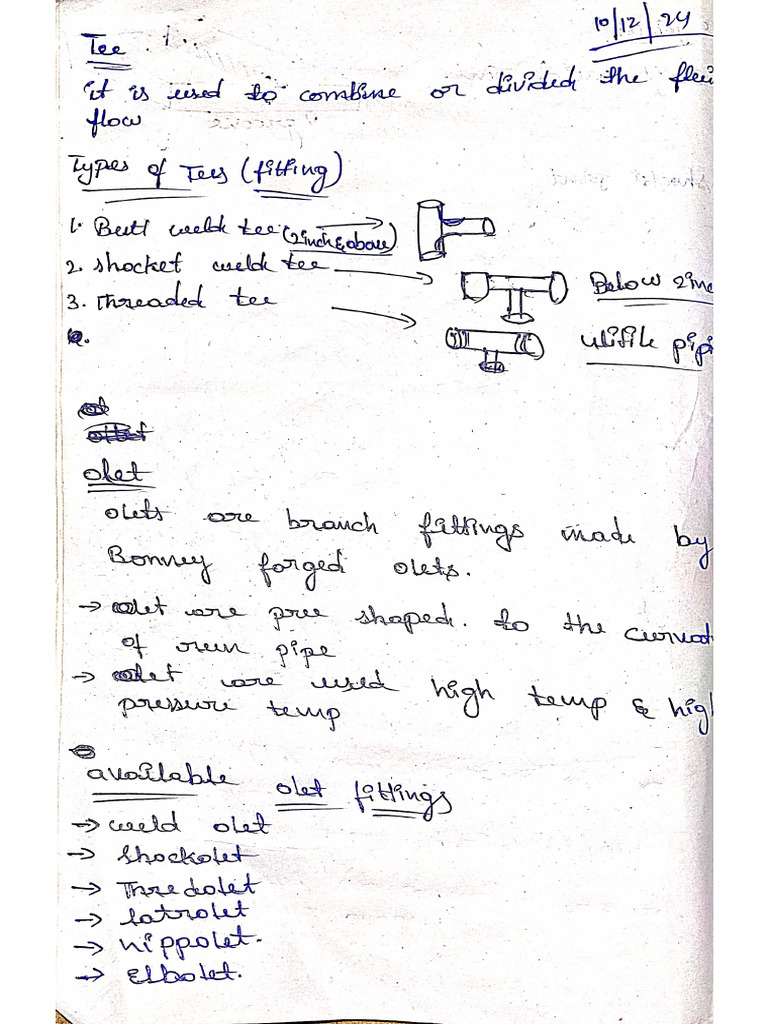 10/12/24
Tee
it is used to combine or divided the flui
flow
Types of Tees (fitting)
1. Butt weld tee (2inch & above)
2. Shocket weld tee
Below 2inc
3. Threaded tee
pipi
olet
olets are branch fittings made by
Bonney forged olets.
→ olet are pree shaped. to the curvat
of reun pipe
→ olet are used high temp & high
pressure temp
available olet fittings
→ weld olet
→ Shockolet
→ Thredolet
→ latrolet
→ Nippolet.
→ Elbolet.